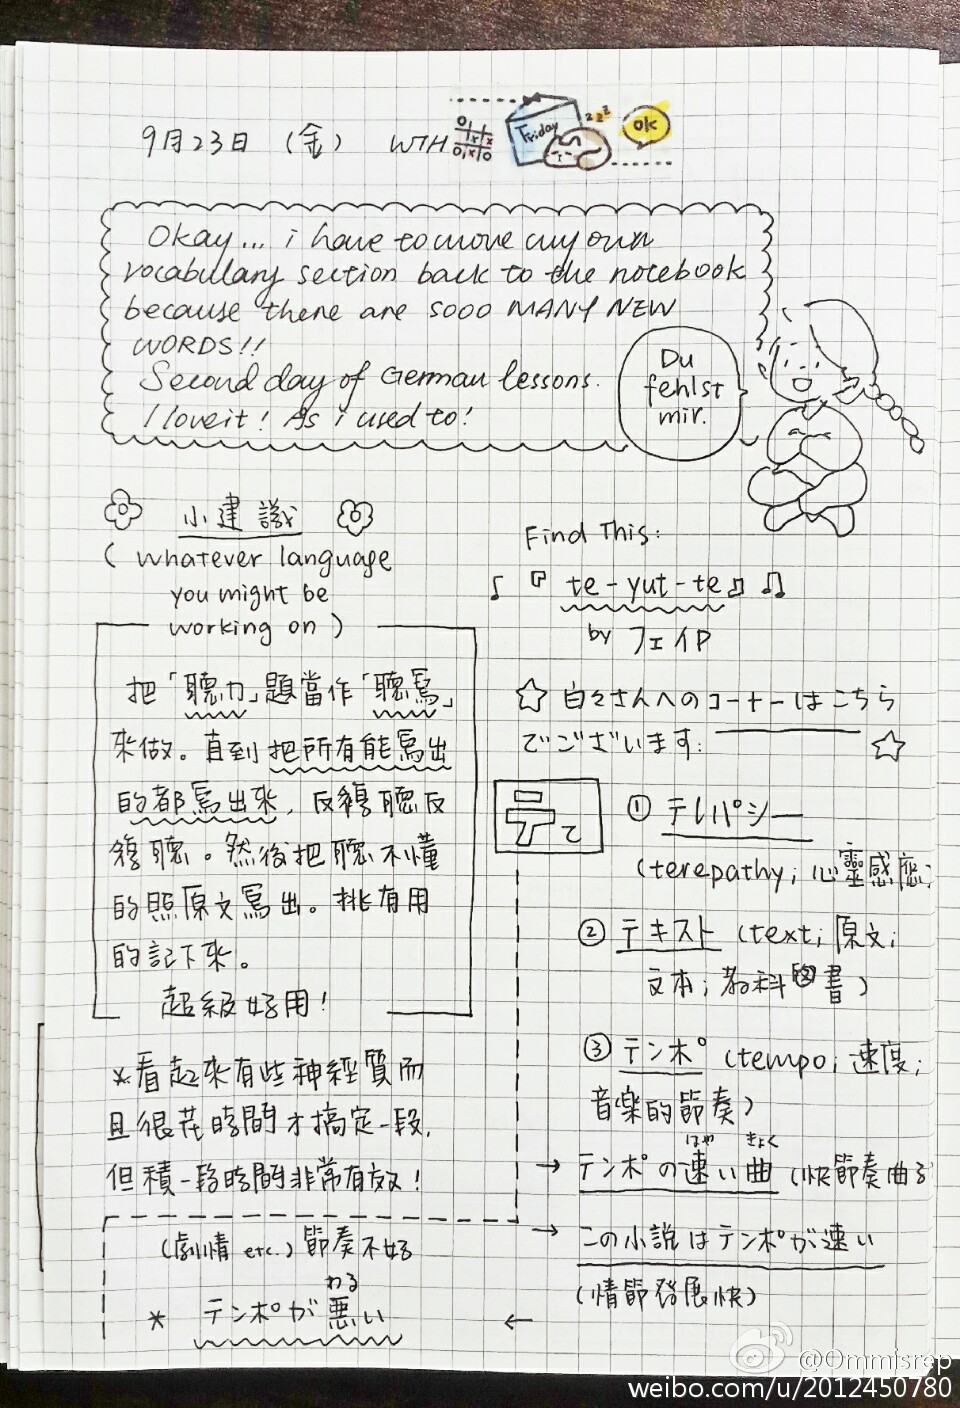 9月23日 (金) WTH
Friday
zzz
OK
Okay... i have to move my own
vocabullary section back to the notebook
because there are sooo MANY NEW
WORDS!!
Second day of German lessons.
I love it! As i used to!
Du
fehlst
mir.
小建議
(whatever language
you might be
working on)
把「聽力」題當作「聽寫」
來做。直到把所有能寫出
的都寫出來，反複聽反
複聽。然後把聽不懂
的照原文寫出。挑有用
的記下來。
超級好用!
*看起來有些神經質而
且很花時間才搞定一段,
但積一段時間非常有效!
(劇情 etc.) 節奏不好
わる
* テンポが悪い
Find This:
♪『te-yut-te♫』♫
by フェイP
☆ 白々さんへのコーナーはこちら
でございます. ☆
テ て
① テレパシー
(terepathy; 心靈感應;
② テキスト (text; 原文;
文本; 教科圖書)
③ テンポ (tempo; 速度;
音樂的節奏)
はや きょく
→ テンポの速い曲 (快節奏曲子
→ この小説はテンポが速い
(情節發展快)
←
@Ommisrep
weibo.com/u/2012450780